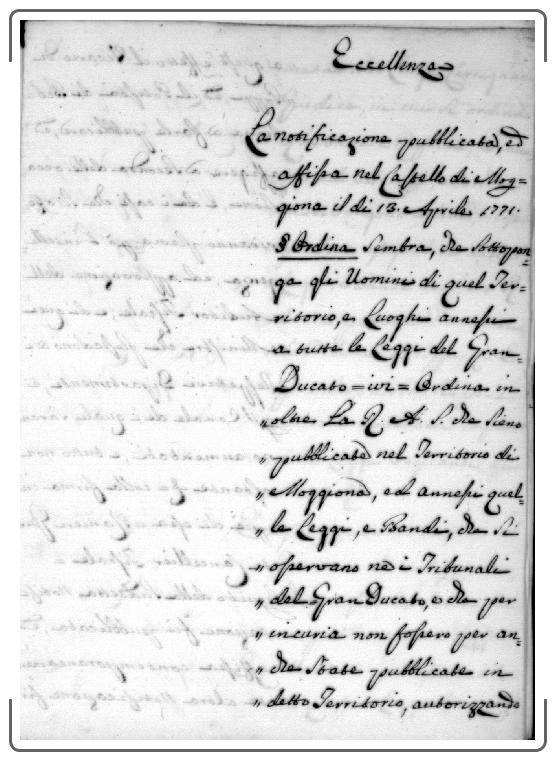 Eccellenza
La notificazione pubblicata, ed
affissa nel Castello di Mog=
giona il di 13. Aprile 1771.
§ Ordina Sembra, che Sottopon=
ga gli Uomini di quel Ter=
ritorio, e Luoghi annessi
a tutte le Leggi del Gran=
Ducato = ivi = Ordina in
„ oltre La R. A. S. che sieno
„ pubblicate nel Territorio di
„ Moggiona, ed annessi quel=
„ le Leggi, e Bandi, che si
„ osservano ne i Tribunali
„ del Gran Ducato, e che per
„ incuria non fossero per an=
„ che State pubblicate in
„ detto Territorio, autorizzando